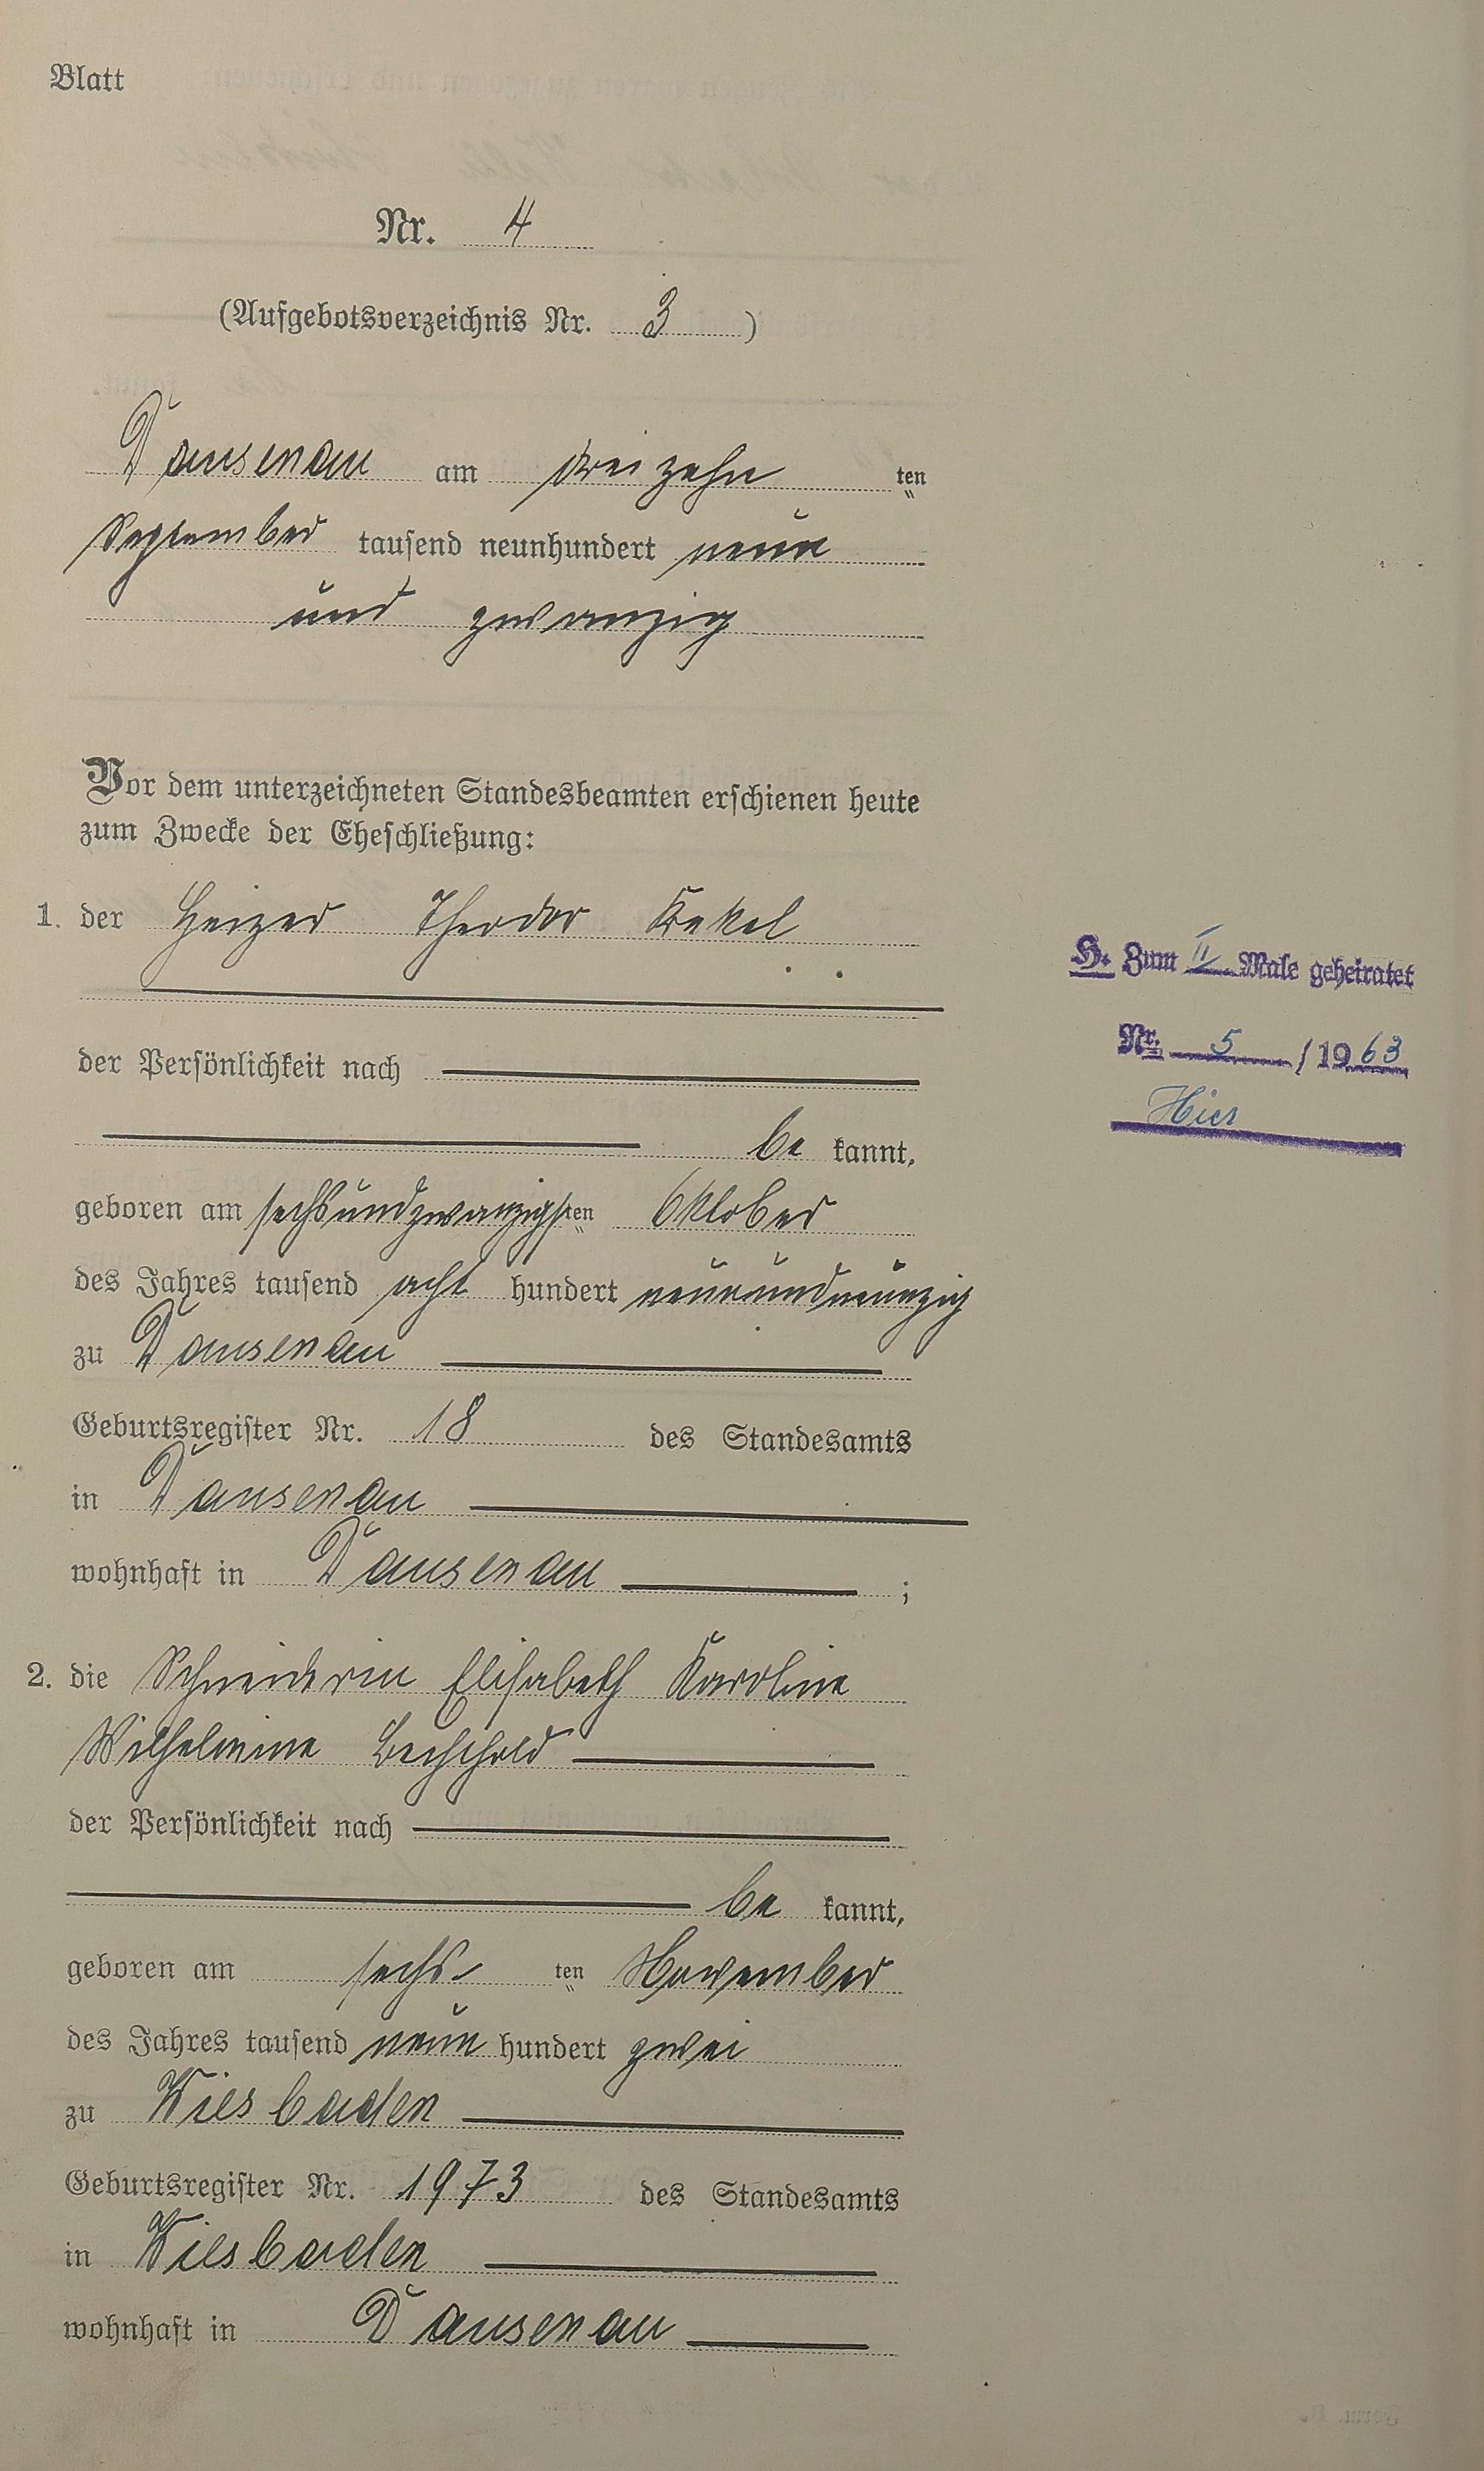 Blatt
Nr. 4
(Aufgebotsverzeichnis Nr. 3 )
Dausenau am dreizehn ten
September tausend neunhundert neun
und zwanzig
Vor dem unterzeichneten Standesbeamten erschienen heute
zum Zwecke der Eheschließung:
1. der Heizer Theodor Krekel
der Persönlichkeit nach
be kannt,
geboren am sechsundzwanzigsten Oktober
des Jahres tausend acht hundert neunundneunzig
zu Dausenau
Geburtsregister Nr. 18 des Standesamts
in Dausenau
wohnhaft in Dausenau ;
2. die Schneiderin Elisabeth Karoline
Wilhelmine Bechthold
der Persönlichkeit nach
be kannt,
geboren am sechs ten November
des Jahres tausend neun hundert zwei
zu Wiesbaden
Geburtsregister Nr. 1973 des Standesamts
in Wiesbaden
wohnhaft in Dausenau
H. Zum II Male geheiratet
Nr. 5 / 1963
Hier